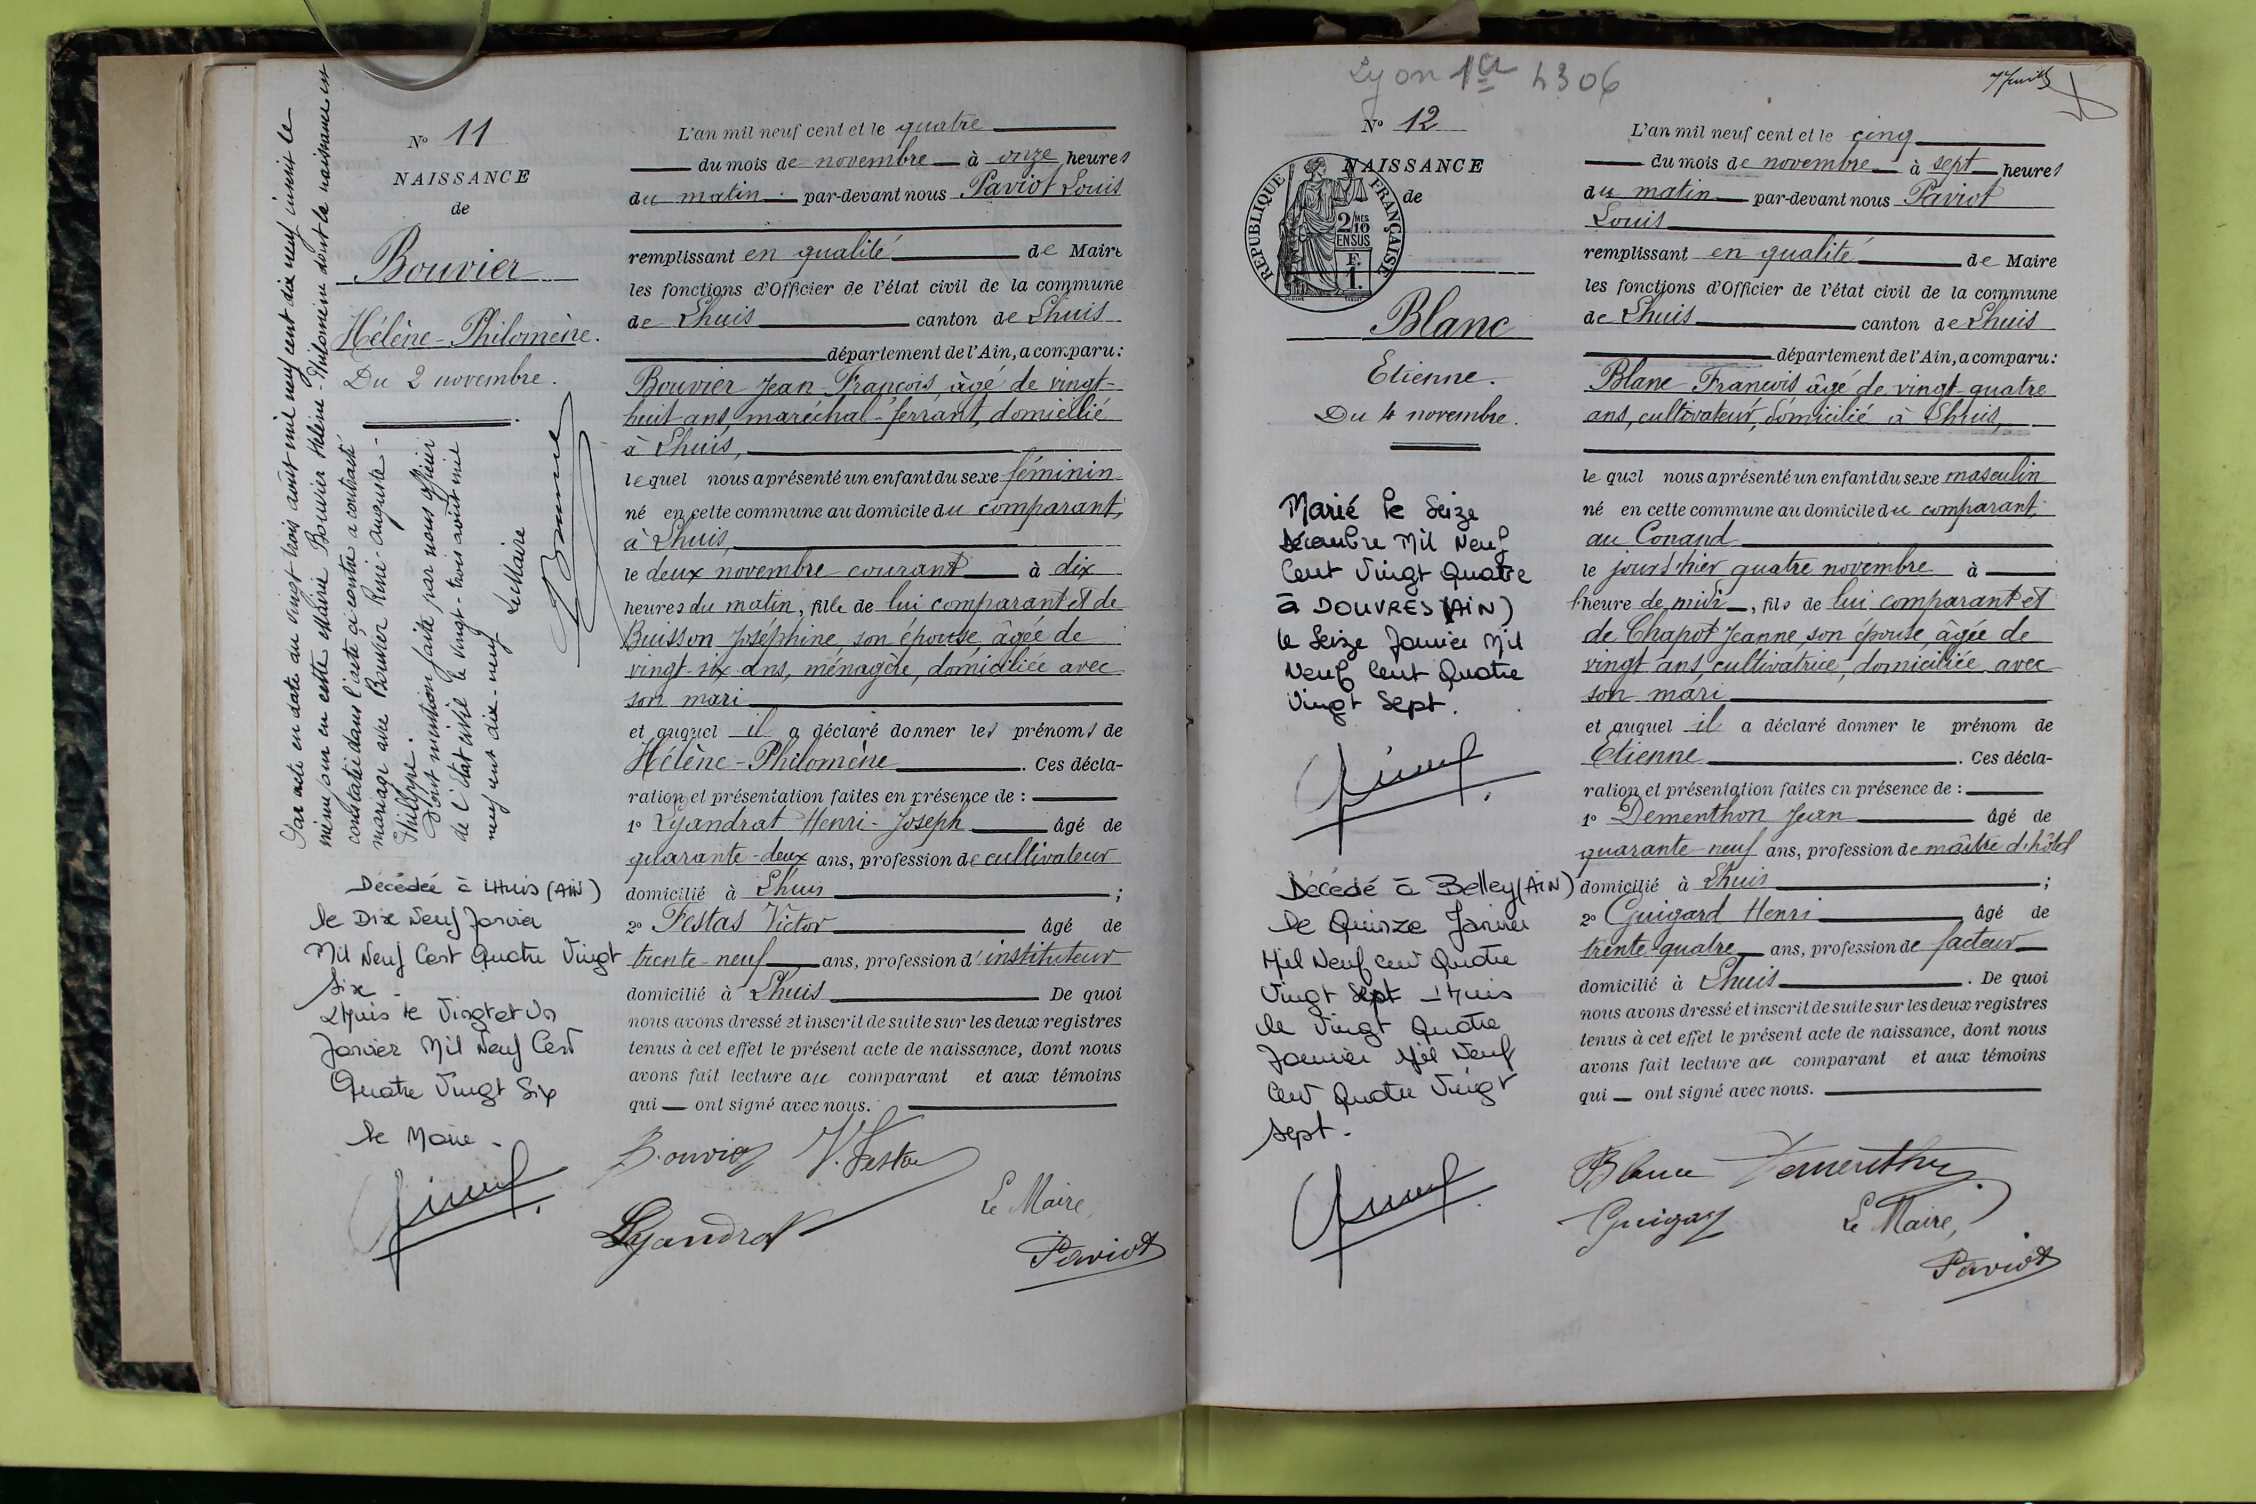 N° 11
NAISSANCE
de
Bouvier
Hélène-Philomène.
Du 2 novembre.
Par acte en date du vingt trois août mil neuf cent dix neuf inscrit le
même jour en cette mairie Bouvier Hélène-Philomène dont la naissance est
constatée dans l'acte ci-contre a contracté
mariage avec Bouvier René-Auguste-
Philippe.
Dont mention faite par nous officier
de l'état civil le vingt-trois août mil
neuf cent dix-neuf
Le Maire
Décédée à LHuis (AiN)
le Dix Neuf Janvier
Mil Neuf Cent Quatre Vingt
Six
LHuis le Vingt et Un
Janvier Mil Neuf Cent
Quatre Vingt Six
le Maire -
L'an mil neuf cent et le quatre
du mois de novembre à onze heures
du matin par-devant nous Paviot Louis
remplissant en qualité de Maire
les fonctions d'Officier de l'état civil de la commune
de Lhuis canton de Lhuis
département de l'Ain, a comparu:
Bouvier Jean-François, âgé de vingt-
huit ans, maréchal-ferrant, domicilié
à Lhuis,
lequel nous a présenté un enfant du sexe féminin
né en cette commune au domicile du comparant,
à Lhuis,
le deux novembre courant à dix
heures du matin, fille de lui comparant et de
Buisson Joséphine, son épouse, âgée de
vingt-six ans, ménagère, domiciliée avec
son mari
et auquel il a déclaré donner les prénoms de
Hélène-Philomène. Ces décla-
ration et présentation faites en présence de :
1° Lyandrat Henri-Joseph âgé de
quarante-deux ans, profession de cultivateur
domicilié à Lhuis ;
2° Festas Victor âgé de
trente-neuf ans, profession d'instituteur
domicilié à Lhuis De quoi
nous avons dressé et inscrit de suite sur les deux registres
tenus à cet effet le présent acte de naissance, dont nous
avons fait lecture au comparant et aux témoins
qui ont signé avec nous.
Bouvier V. Festas
Lyandrat
Le Maire,
Paviot
Lyon 1er 4306
N° 12
NAISSANCE
de
REPUBLIQUE FRANÇAISE
2/10 MES
EN SUS
F.
1.
Blanc
Etienne.
Du 4 novembre.
Marié le Seize
décembre Mil Neuf
Cent Vingt Quatre
à DOUVRES (AiN)
le Seize Janvier Mil
Neuf Cent Quatre
Vingt Sept.
Décédé à Belley (AiN)
le Quinze Janvier
Mil Neuf cent Quatre
Vingt Sept LHuis
le Vingt Quatre
Janvier Mil Neuf
Cent Quatre Vingt
Sept.
L'an mil neuf cent et le cinq
du mois de novembre à sept heures
du matin par-devant nous Paviot
Louis
remplissant en qualité de Maire
les fonctions d'Officier de l'état civil de la commune
de Lhuis canton de Lhuis
département de l'Ain, a comparu:
Blanc François âgé de vingt-quatre
ans, cultivateur, domicilié à Lhuis,
lequel nous a présenté un enfant du sexe masculin
né en cette commune au domicile du comparant
au Conand
le jour d'hier quatre novembre à
l'heure de midi, fils de lui comparant et
de Chapot Jeanne, son épouse, âgée de
vingt ans, cultivatrice, domiciliée avec
son mari
et auquel il a déclaré donner le prénom de
Etienne. Ces décla-
ration et présentation faites en présence de :
1° Dementhon Jean âgé de
quarante-neuf ans, profession de maître d'hôtel
domicilié à Lhuis ;
2° Guigard Henri âgé de
trente-quatre ans, profession de facteur
domicilié à Lhuis. De quoi
nous avons dressé et inscrit de suite sur les deux registres
tenus à cet effet le présent acte de naissance, dont nous
avons fait lecture au comparant et aux témoins
qui ont signé avec nous.
Blanc Dementhon
Guigard
Le Maire,
Paviot